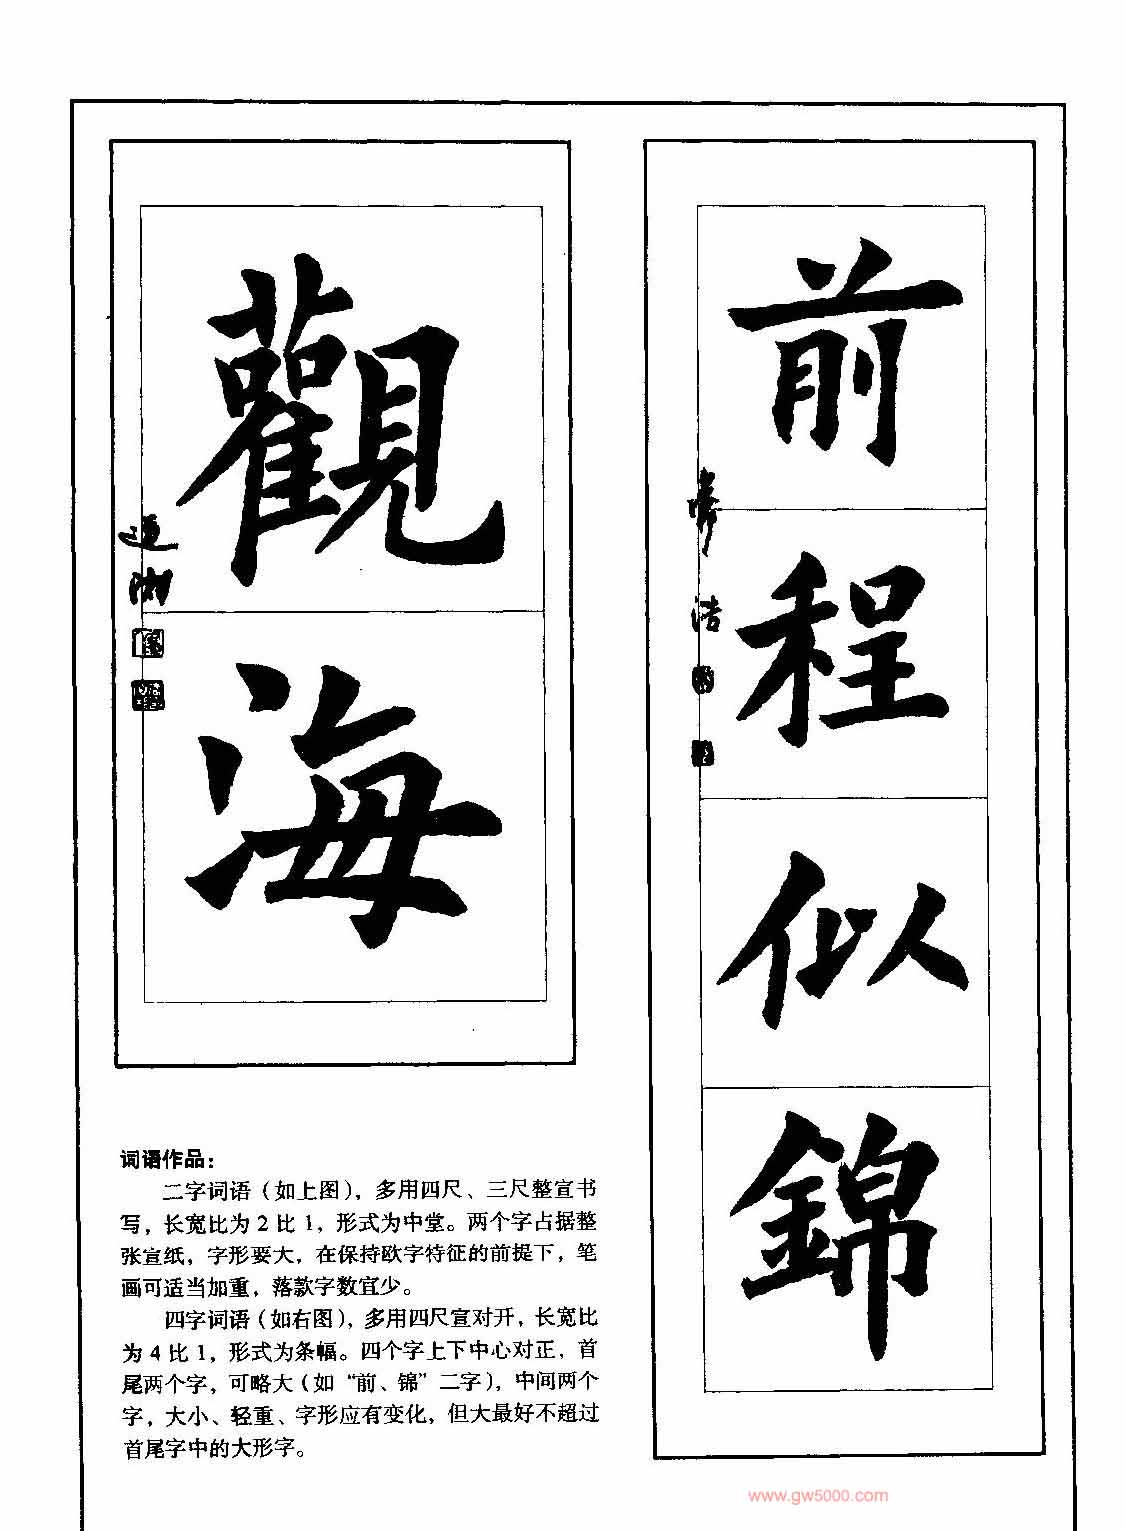 觀
海
前
程
似
錦
词语作品：
二字词语（如上图），多用四尺、三尺整宣书
写，长宽比为 2 比 1，形式为中堂。两个字占据整
张宣纸，字形要大，在保持欧字特征的前提下，笔
画可适当加重，落款字数宜少。
四字词语（如右图），多用四尺宣对开，长宽比
为 4 比 1，形式为条幅。四个字上下中心对正，首
尾两个字，可略大（如“前、锦”二字），中间两个
字，大小、轻重、字形应有变化，但大最好不超过
首尾字中的大形字。
www.gw5000.com